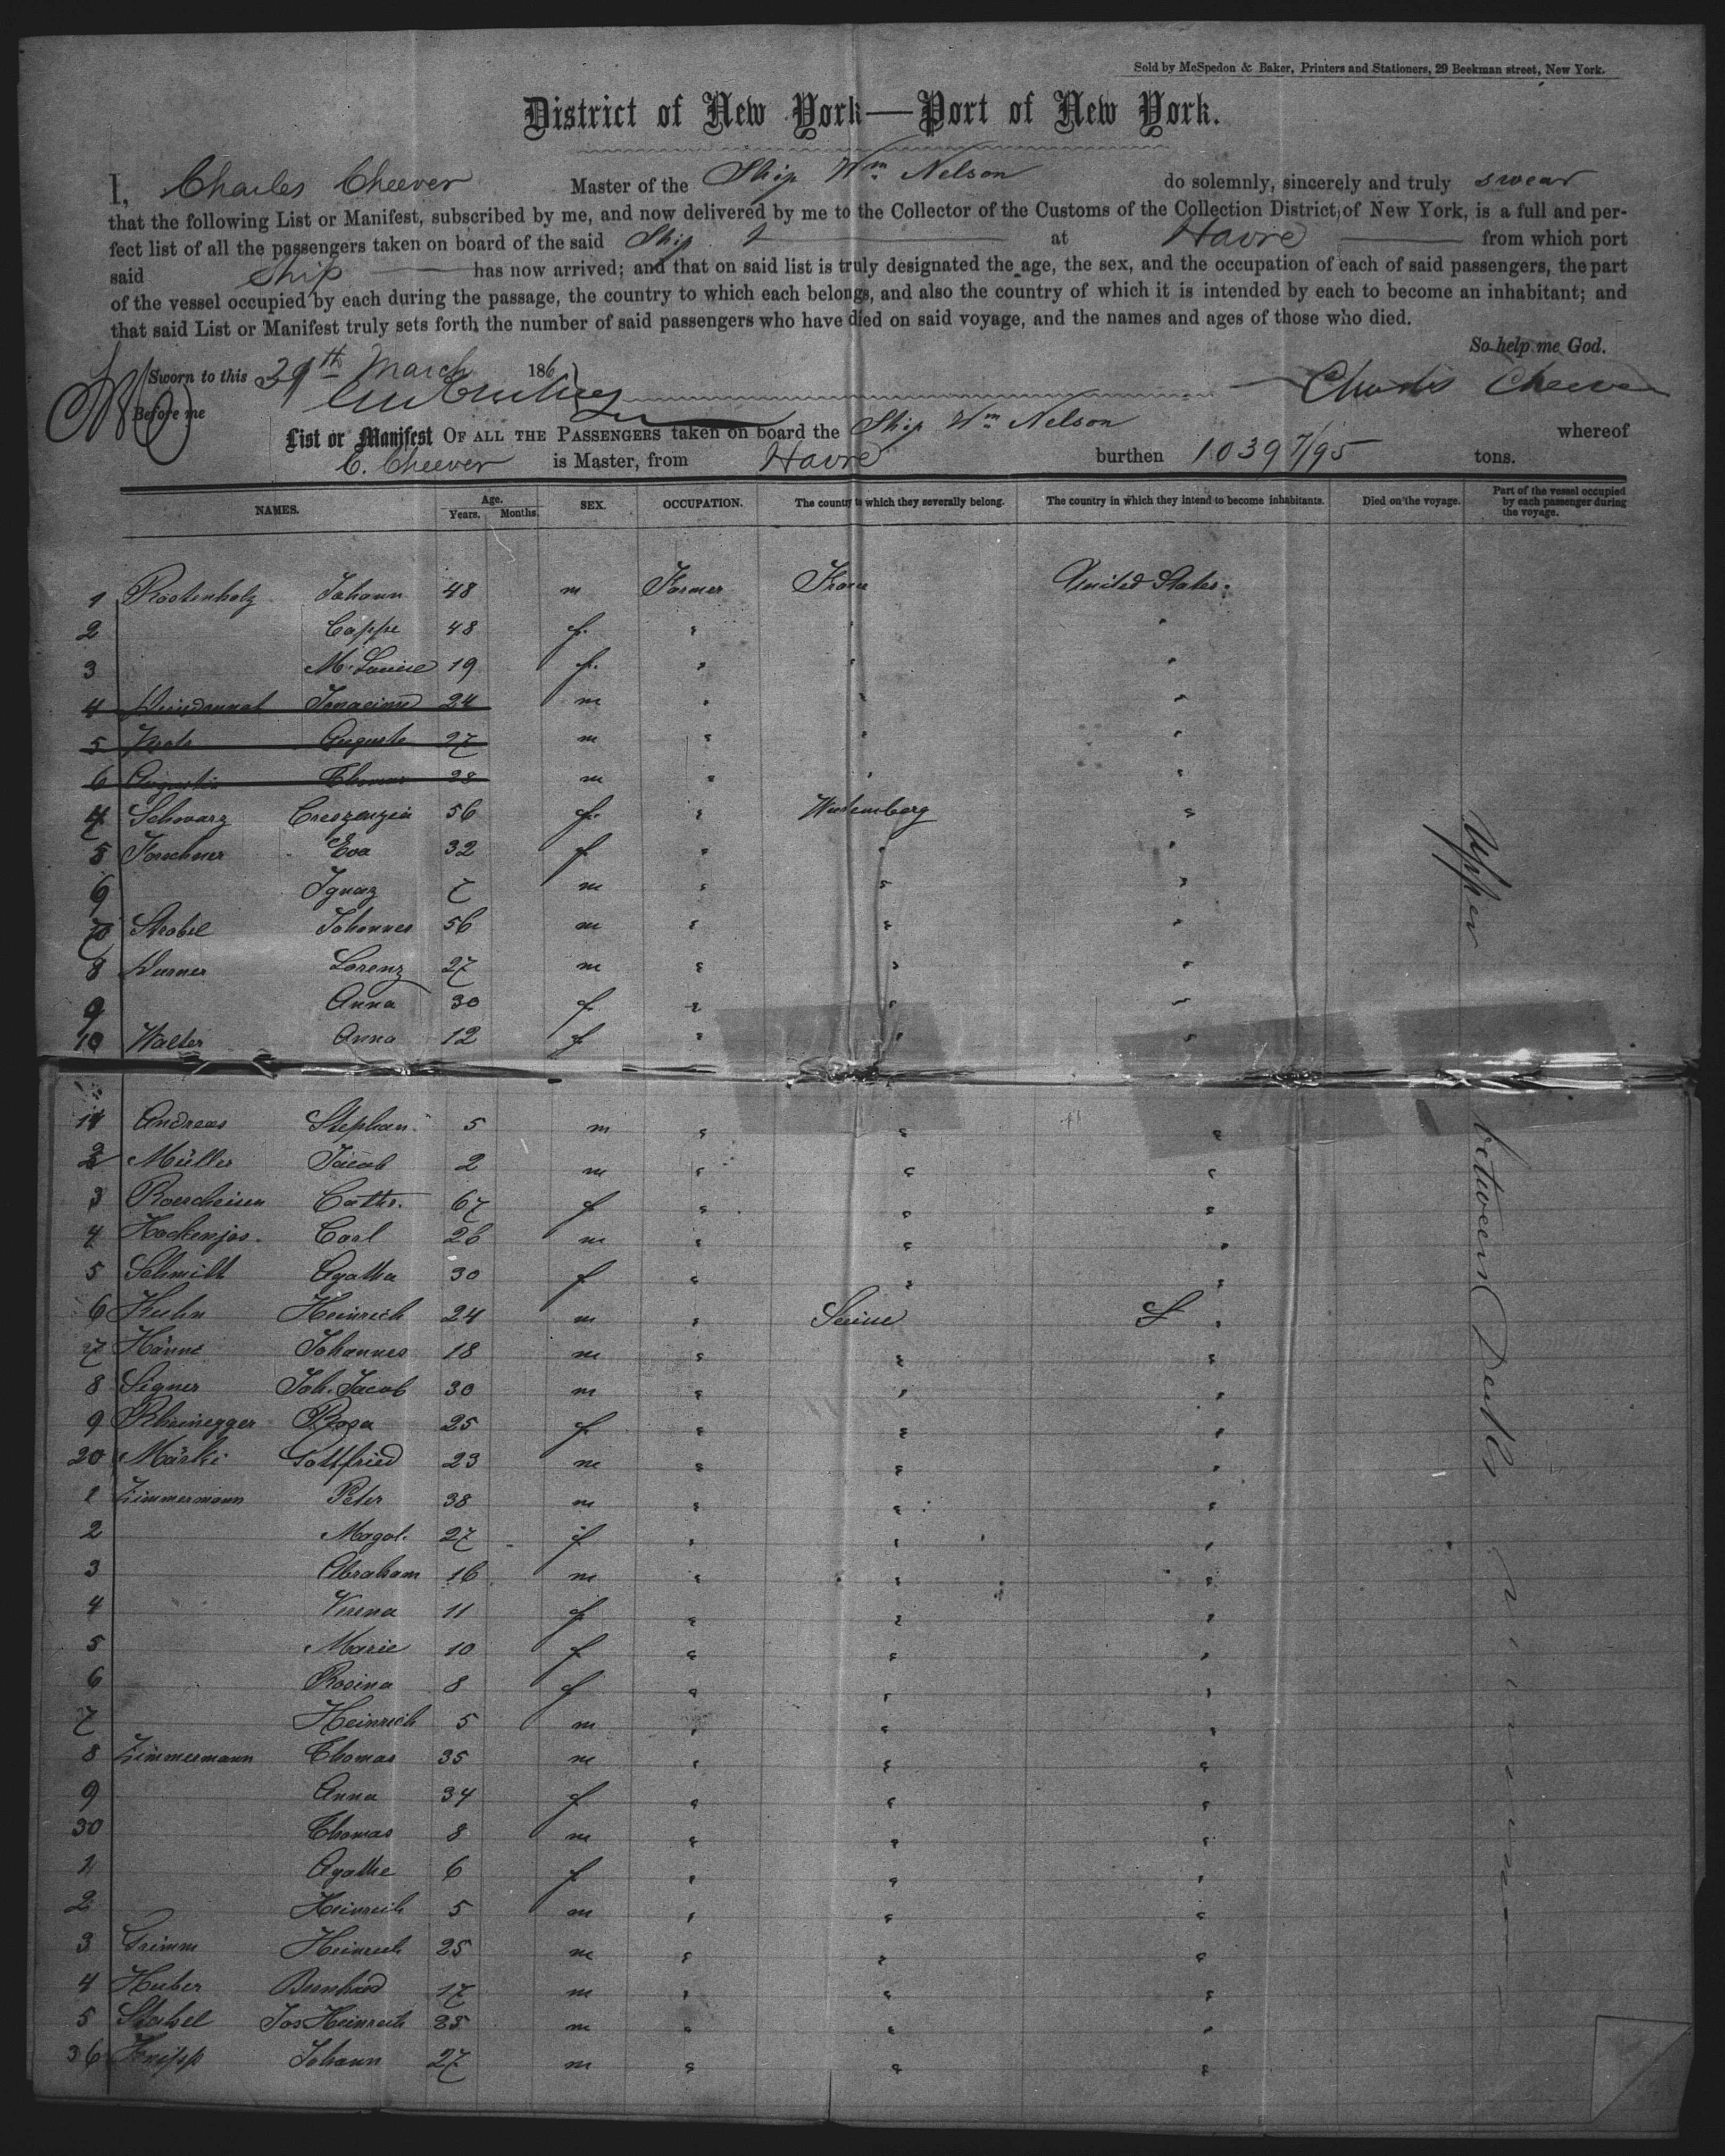 Sold by McSpedon & Baker, Printers and Stationers, 29 Beekman street, New York.
District of New York—Port of New York.
I, Charles Cheever Master of the Ship Wm. Nelson do solemnly, sincerely and truly swear
that the following List or Manifest, subscribed by me, and now delivered by me to the Collector of the Customs of the Collection District of New York, is a full and per-
fect list of all the passengers taken on board of the said Ship at Havre from which port
said Ship has now arrived; and that on said list is truly designated the age, the sex, and the occupation of each of said passengers, the part
of the vessel occupied by each during the passage, the country to which each belongs, and also the country of which it is intended by each to become an inhabitant; and
that said List or Manifest truly sets forth the number of said passengers who have died on said voyage, and the names and ages of those who died.
So help me God.
Sworn to this 29th March 186
Charles Cheever
Before me
List or Manifest OF ALL THE PASSENGERS taken on board the Ship Wm. Nelson whereof
C. Cheever is Master, from Havre burthen 1039 7/95 tons.
NAMES. Age. Years. Months. SEX. OCCUPATION. The country to which they severally belong. The country in which they intend to become inhabitants. Died on the voyage. Part of the vessel occupied by each passenger during the voyage.
1 Rockenholz Johann 48 m Farmer United States.
2 48 f. "
3 M. Louise 19 f. "
4 24 m "
5 Auguste 27 m "
6 Thomas 28 m "
4 Schwarz Creszenzia 56 f. " Wurtemberg "
5 Forschner Eva 32 f " " "
6 Ignaz 7 m " " "
7 Strobel Johannes 56 m " " "
8 Wurner Lorenz 27 m " " "
9 Anna 30 f " " "
10 Walter Anna 12 f " " "
11 Andreas Stephan 5 m " " "
2 Müller Jacob 2 m " " "
3 Roescheisen Cath. 67 f " " "
4 Hockenjos. Carl 26 m " " "
5 Schmidt Agatha 30 f " " "
6 Kuhn Heinrich 24 m " "
7 Hänne Johannes 18 m " " "
8 Segner Joh. Jacob 30 m " " "
9 Rheinegger Rosa 25 f " " "
20 Märki Gottfried 23 m " " "
1 Zimmermann Peter 38 m " " "
2 Magd. 27 f " " "
3 Abraham 16 m " " "
4 Verena 11 f " " "
5 Marie 10 f " " "
6 Rosina 8 f " " "
7 Heinrich 5 m " " "
8 Zimmermann Thomas 35 m " " "
9 Anna 34 f " " "
30 Thomas 8 m " " "
1 Agathe 6 f " " "
2 Heinrich 5 m " " "
3 Grimm Heinrich 25 m " " "
4 Huber Bernhard 17 m " " "
5 Stahel Jos Heinrich 25 m " " "
36 Knipp Johann 27 m " " "
Upper between Decks